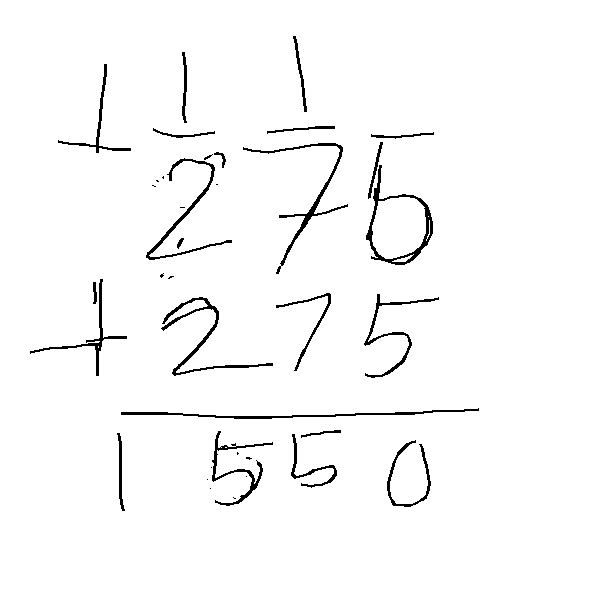 1 1 1
275
+ 275
1 550